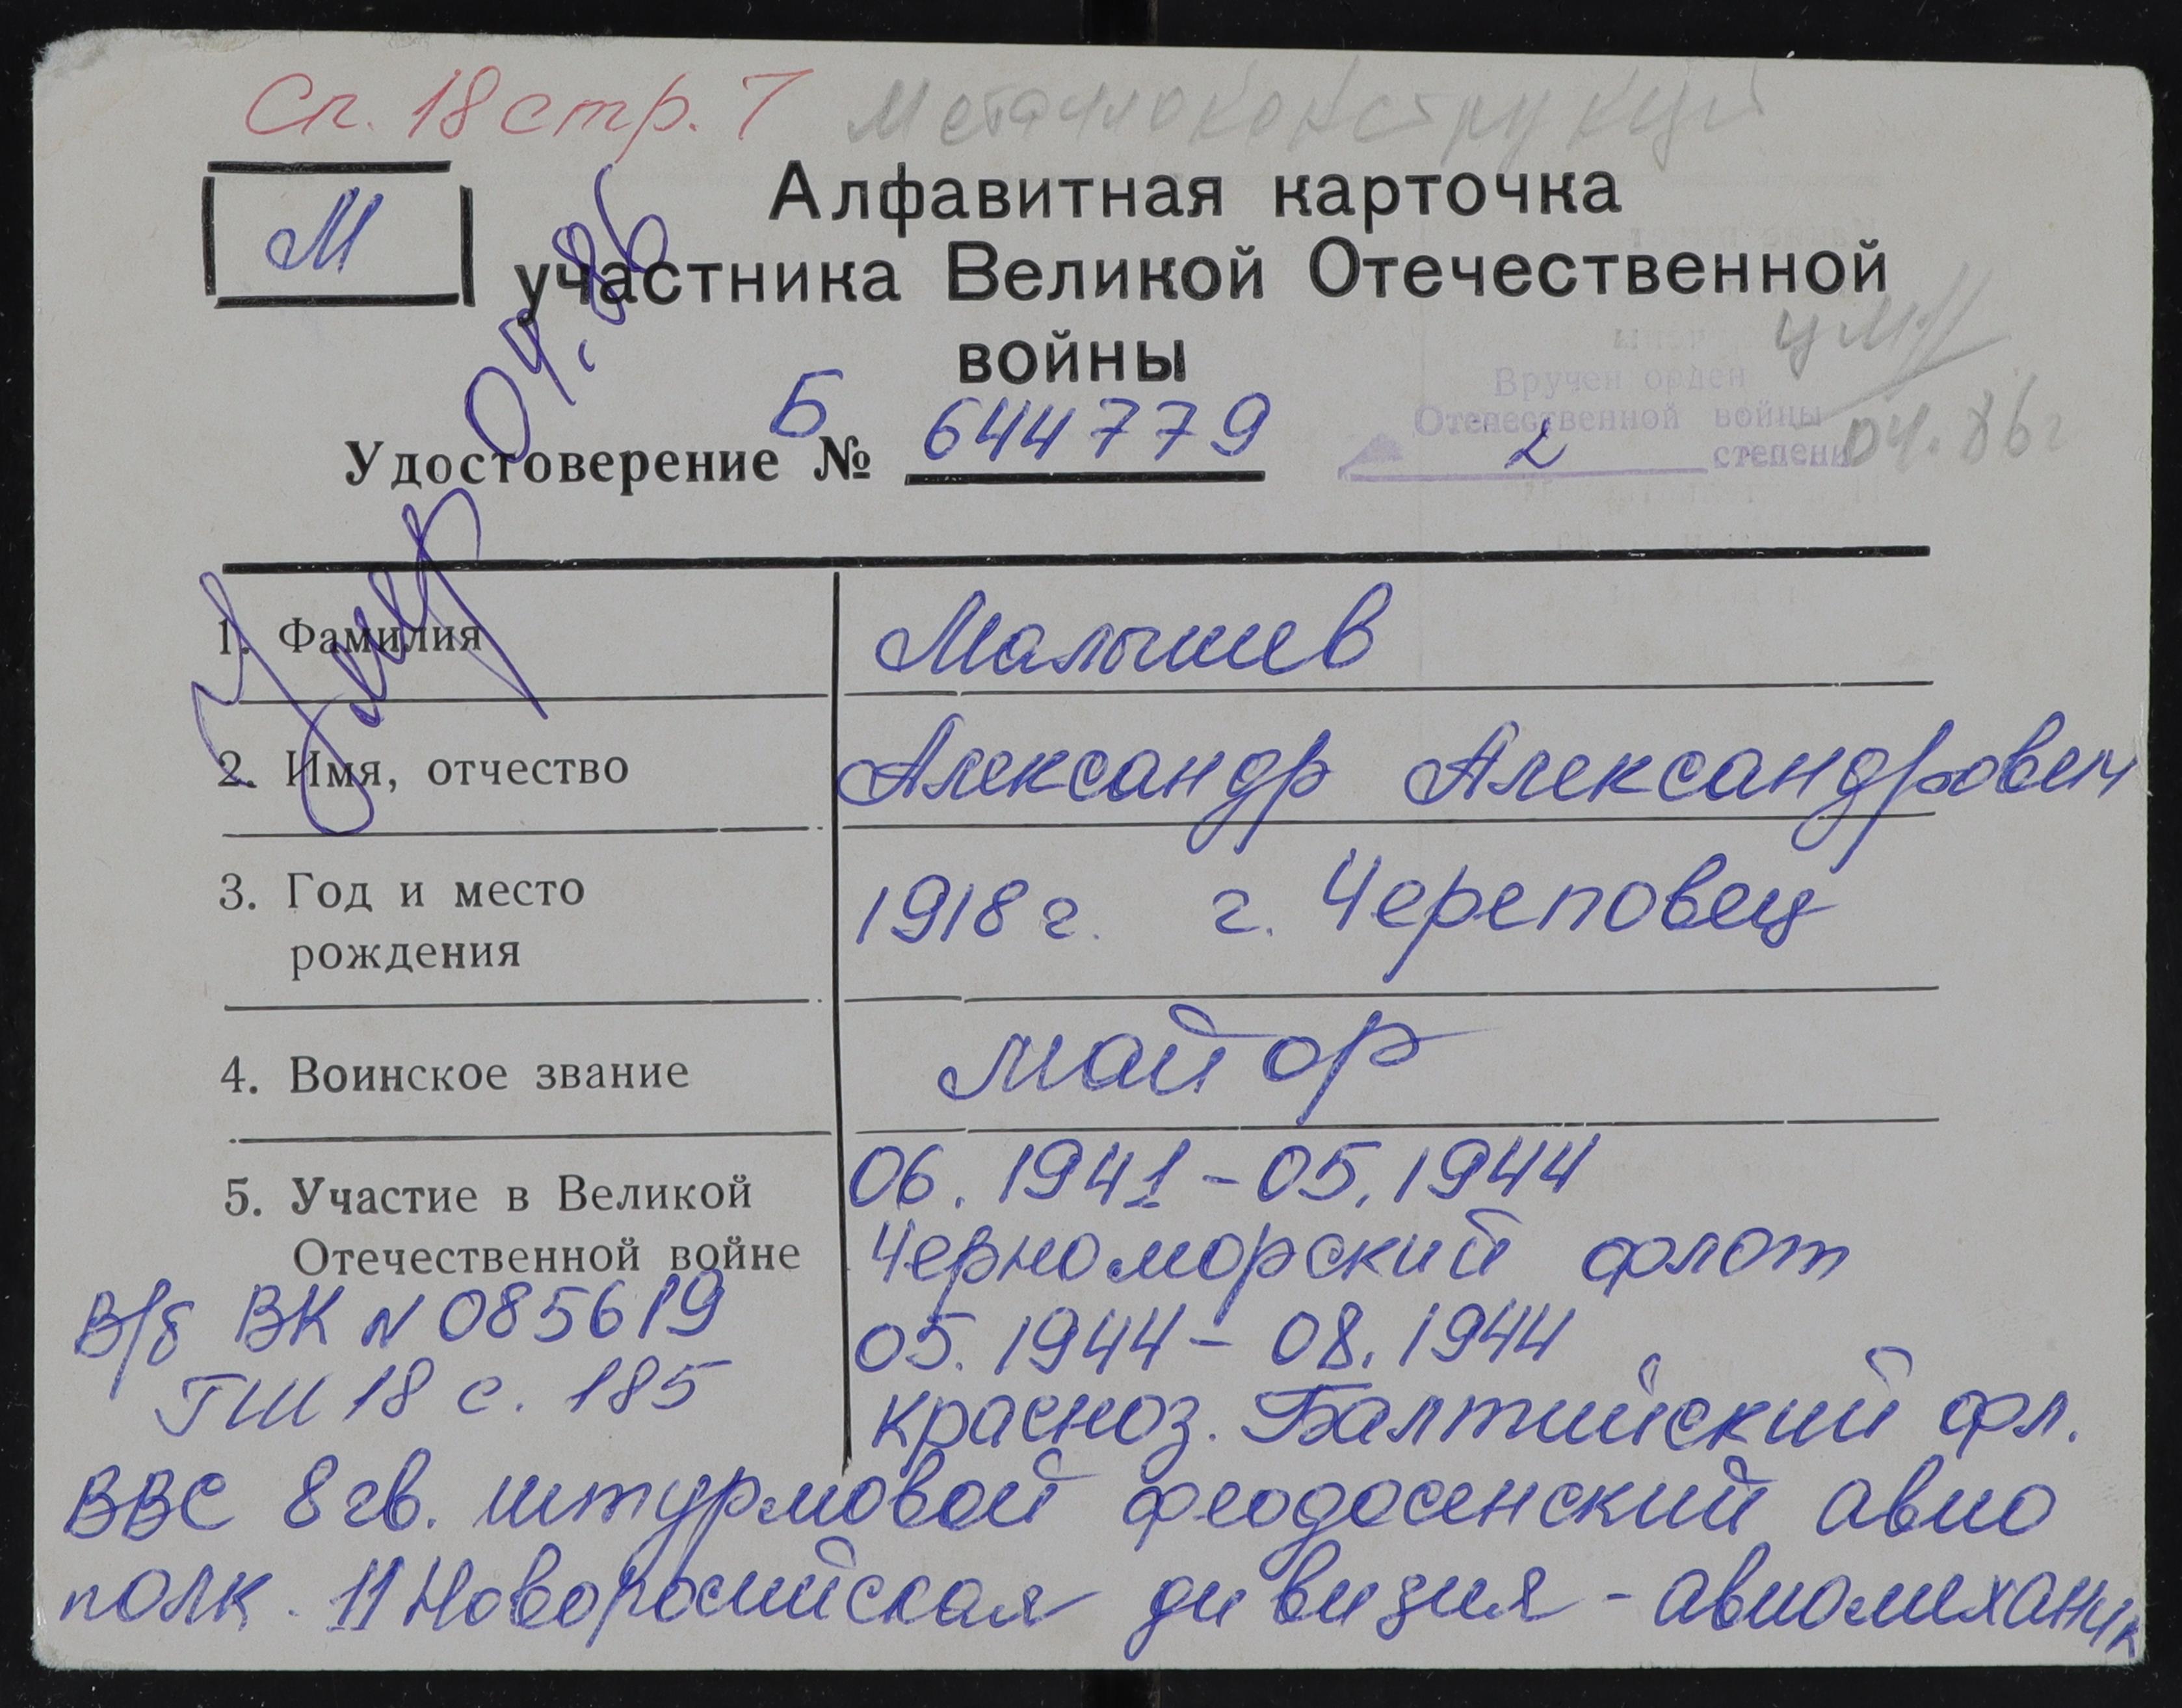 Сп. 18 стр. 7 Металлоконструкций
М
Алфавитная карточка
участника Великой Отечественной
войны
04.86
Умер
Удостоверение Б № 644779
Вручен орден
Отечественной войны
2 степени
04.86г
1. Фамилия Малышев
2. Имя, отчество Александр Александрович
3. Год и место 1918 г. г. Череповец
рождения
4. Воинское звание майор
5. Участие в Великой 06.1941-05.1944
Отечественной войне Черноморский флот
В/б ВК N 085619 05.1944-08.1944
ГШ 18 с. 185 красноз. Балтийский фл.
ВВС 8 гв. штурмовой феодосенский авио
полк. 11 Новоросийская дивизия - авиомеханик